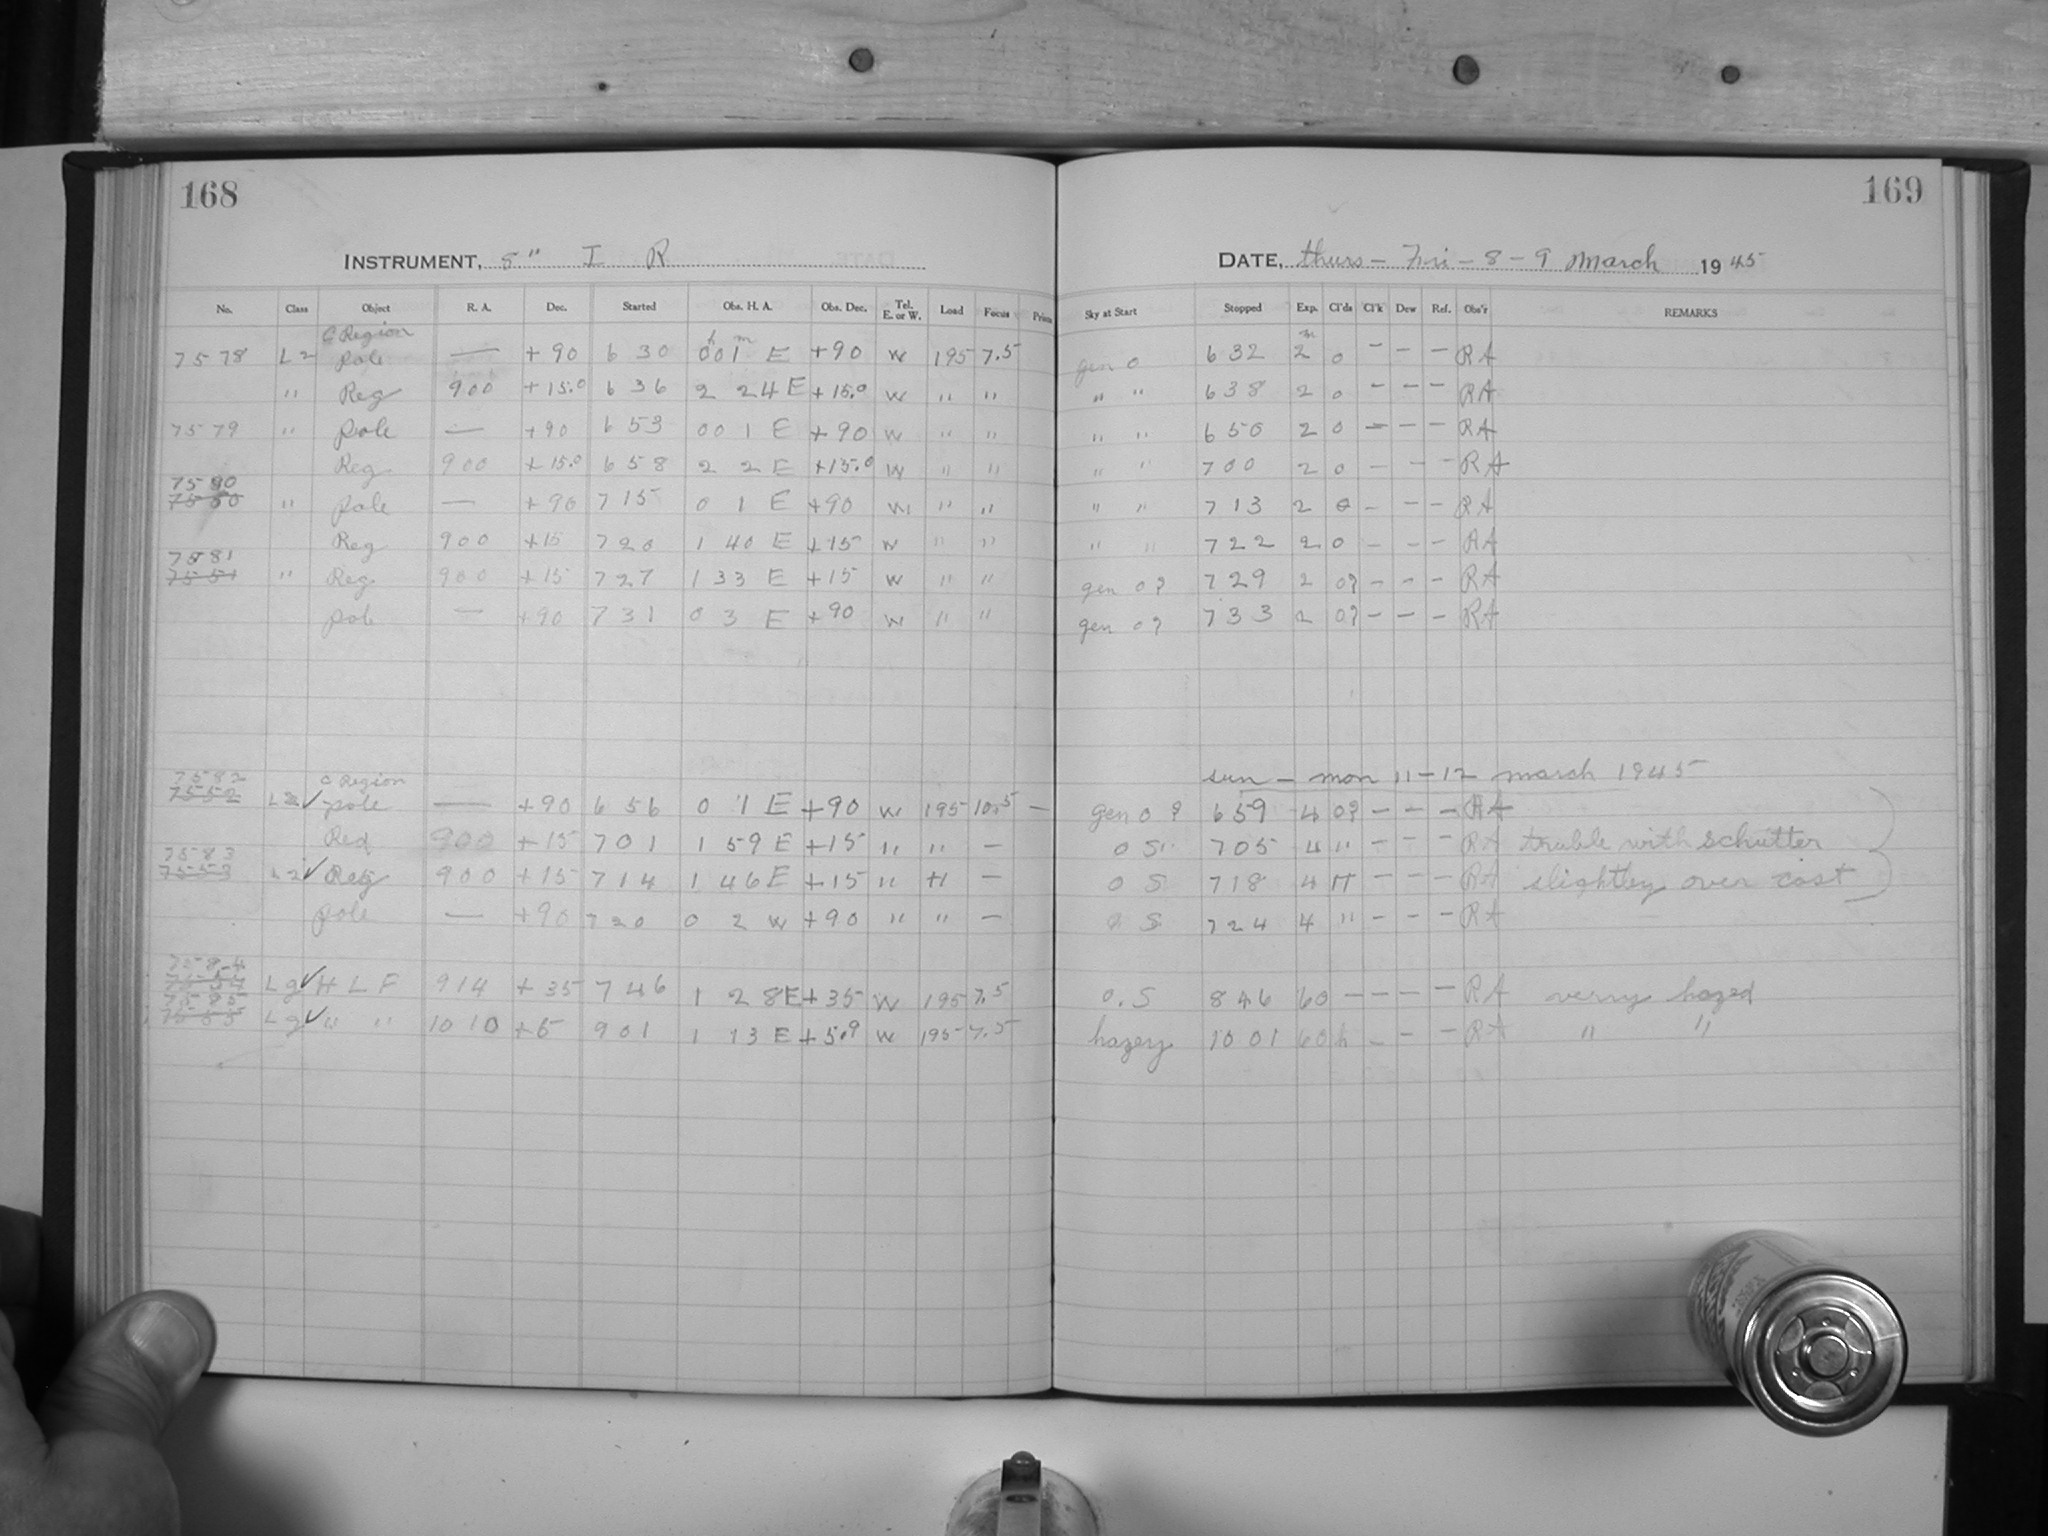 168
INSTRUMENT, 8" I R
No. Class Object R. A. Dec. Started Obs. H. A. Obs. Dec. Tel. E. or W. Load Focus
C Region h m
7578 L2 Pole — +90 6 30 0 01 E +90 W 195 7.5
" Reg 900 +15.0 6 36 2 24 E +15.0 W " "
7579 " Pole — +90 6 53 00 1 E +90 W " "
Reg 900 +15.0 6 58 2 2 E +15.0 W " "
7580
7550 " Pole — +90 7 15 0 1 E +90 W " "
Reg 900 +15 7 20 1 40 E +15 W " "
7581
7551 " Reg 900 +15 7 27 1 33 E +15 W " "
Pole — +90 7 31 0 3 E +90 W " "
7582 C Region
7552 L2 ✓ Pole — +90 6 56 0 1 E +90 W 195 10.5 —
Red 900 +15 7 01 1 59 E +15 " " —
7583
7553 L2 ✓ Reg 900 +15 7 14 1 46 E +15 " " —
Pole — +90 7 20 0 2 W +90 " " —
7584
7554 Lg ✓ H L F 914 +35 7 46 1 28 E +35 W 195 7.5
7585
7555 Lg ✓ " " 10 10 +6 9 01 1 13 E +5.9 W 195 7.5
169
DATE, Thurs — Fri — 8 - 9 March 1945
Sky at Start Stopped Exp. Cl'ds Cl'k Dew Ref. Obs'r REMARKS
m
gen 0 6 32 2 0 — — — RA
" " 6 38 2 0 — — — RA
" " 6 50 2 0 — — — RA
" " 7 00 2 0 — — — RA
" " 7 13 2 0 — — — RA
" " 7 22 2 0 — — — RA
gen 0? 7 29 2 0? — — — RA
gen 0? 7 33 2 0? — — — RA
sun — mon 11-12 march 1945
gen 0? 6 59 4 0? — — — RA
0 S 7 05 4 " — — — RA truble with schutter
0 S 7 18 4 " — — — RA slightley over cast
0 S 7 24 4 " — — — RA
0. S 8 46 60 — — — — RA verry hazed
hazey 10 01 60 h — — — RA " "